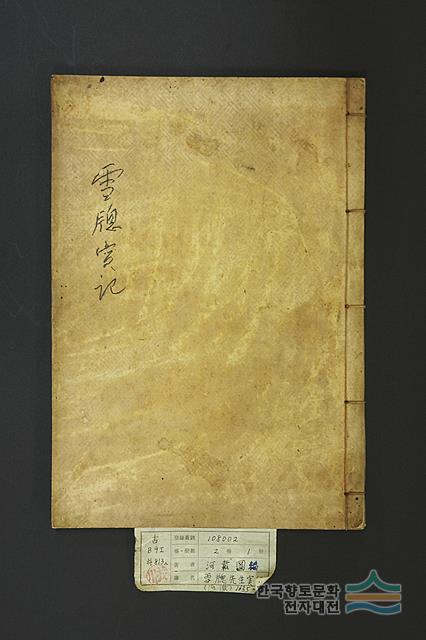 雪牕實記
古
登録番號 108002
2 卷 1 冊
著者 河載圖編
書名 雪牕先生實
한국향토문화
전자대전